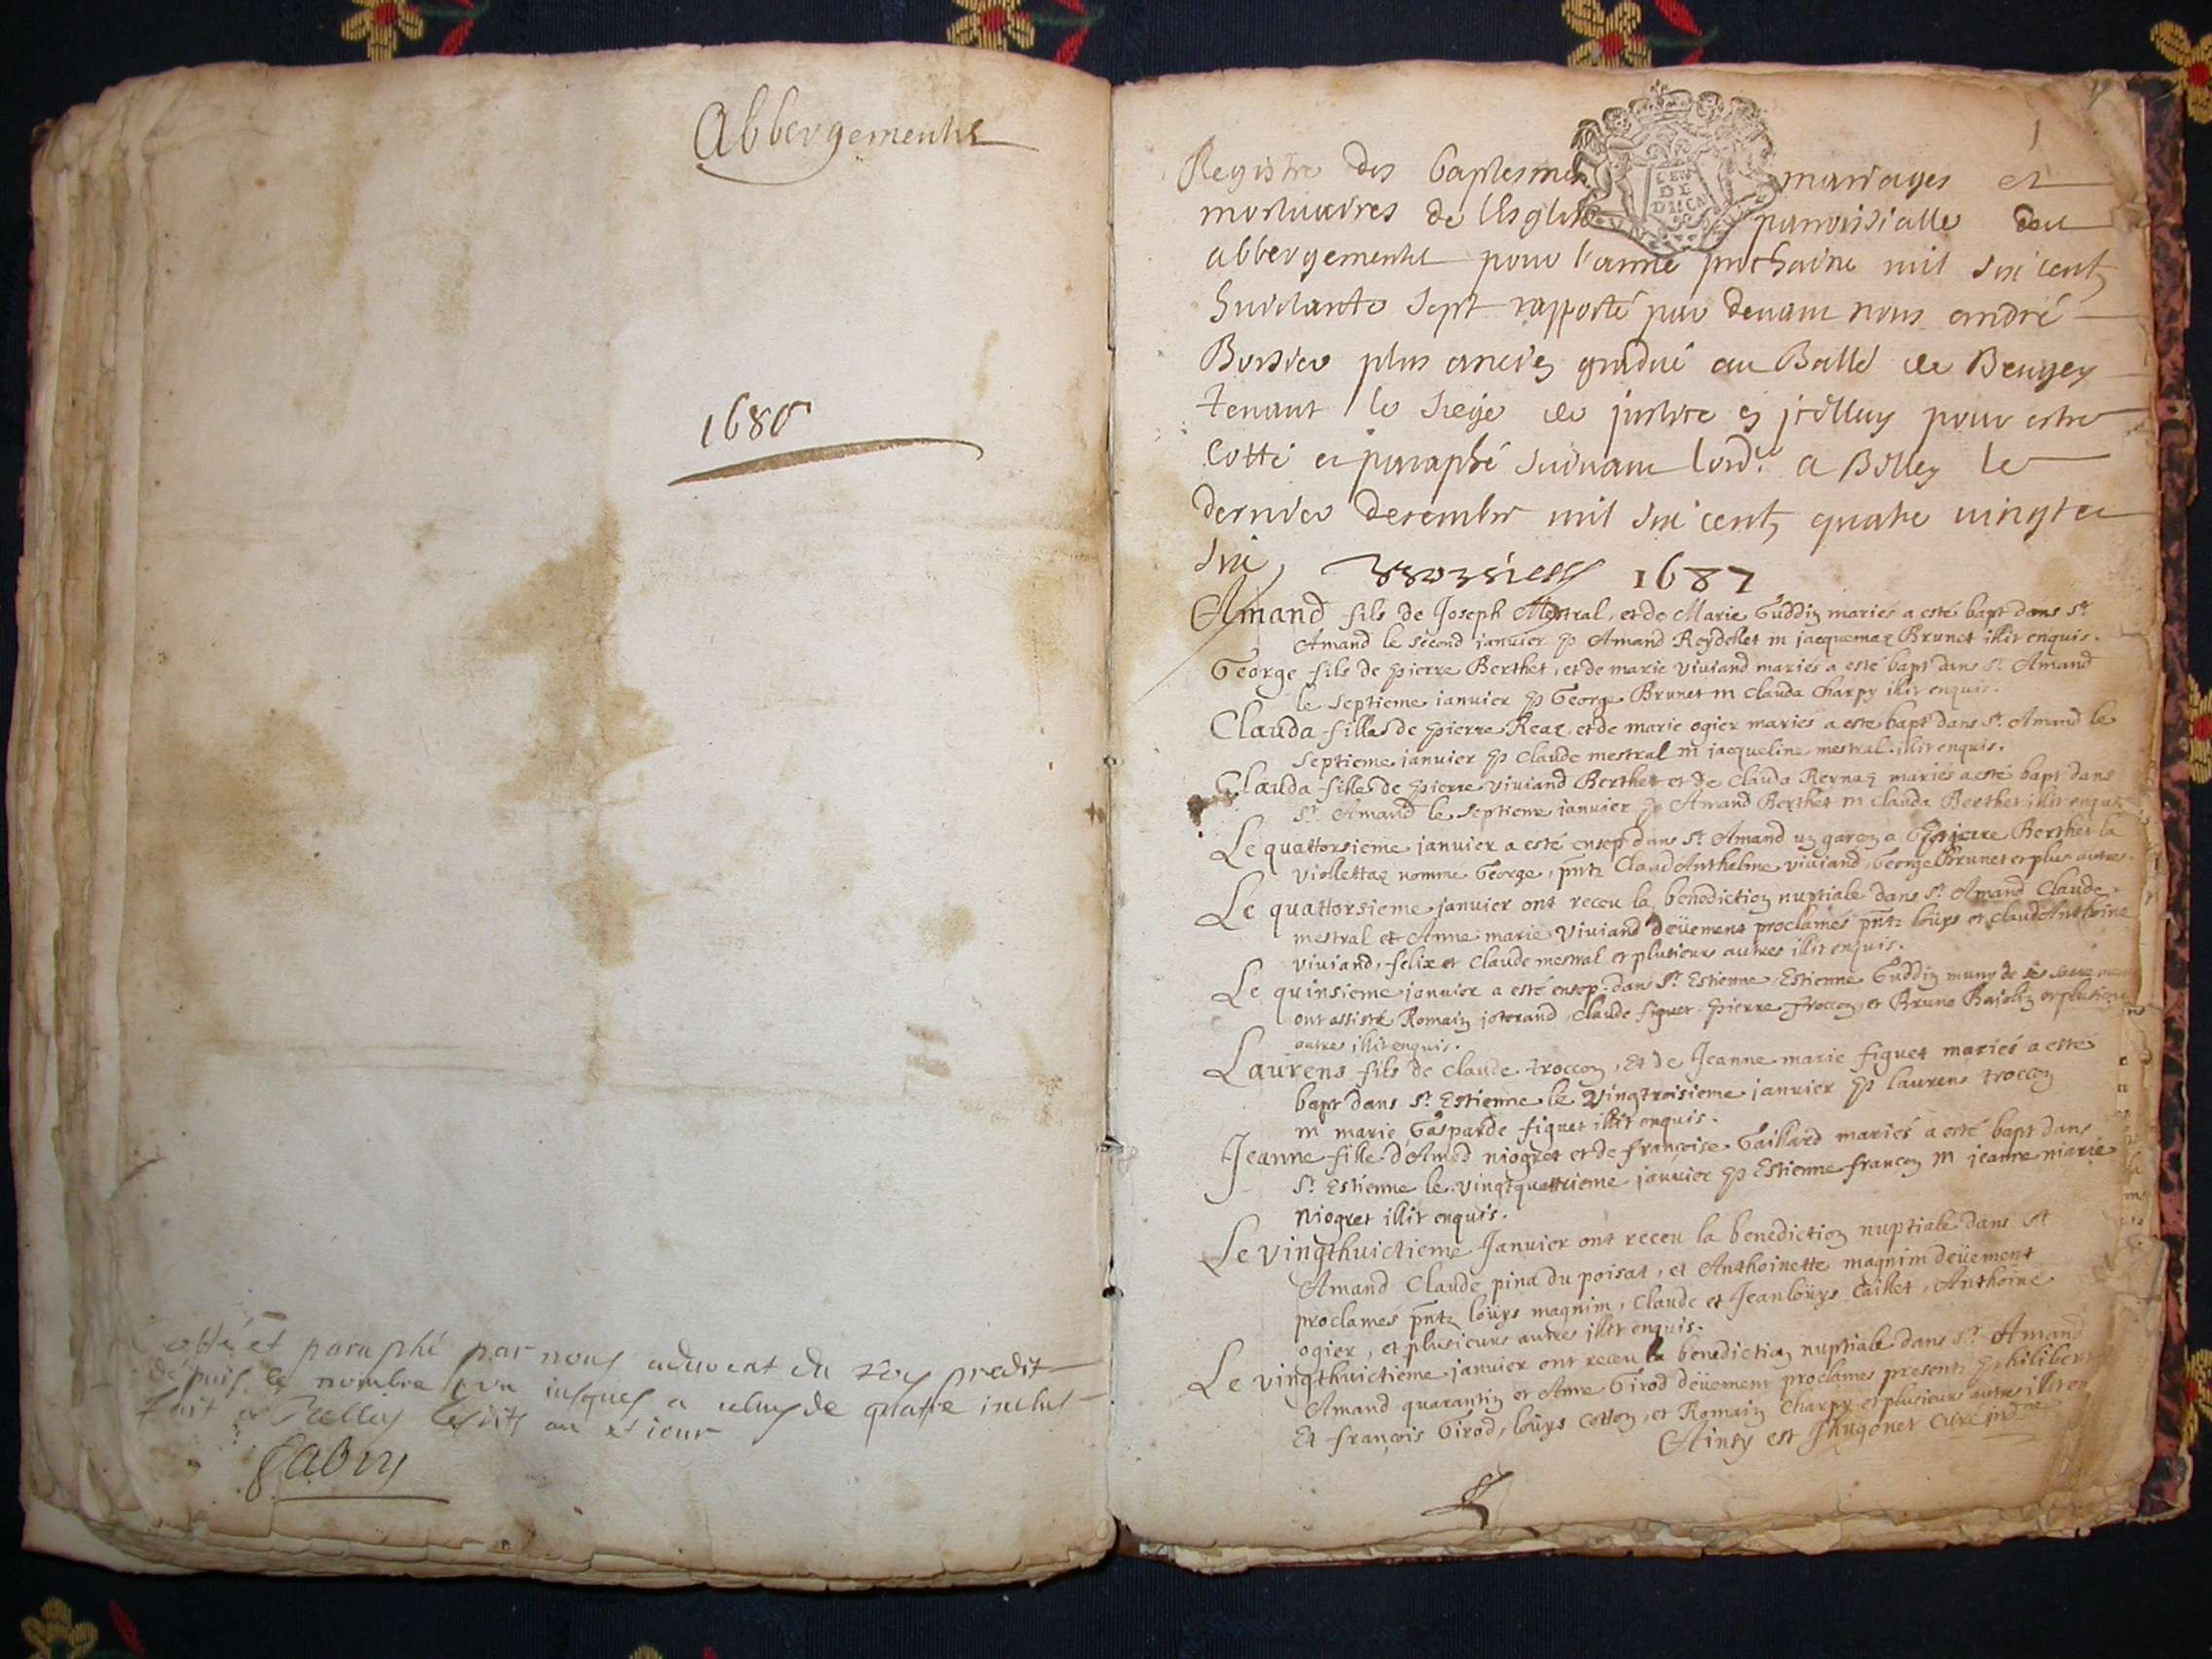 Abbergemente
1686
Cotté et paraphé par nous advocat du Roy predit
depuis le nombre un iusques a celuy de quatre inclus
fait a Belley lesdits an et jour
1
Registre des baptesmes mariages et
mortuaires de lEsglise parroisialle deu
abbergement pour l'anné prochaine mil six cent
huictante sept rapporté par devant nous andré
Borsier plus ancien gradué au Balle de Beugey
tenant le siege de justice en jcelluy pour estre
Cotté et paraphé suivant lord. a Belley le
dernier decembre mil six cent quatre vingt et
six 1687
Amand fils de Joseph Mestral, et de Marie Guddin mariés a esté bapt dans St
Amand le second janvier p Amand Reydellet m jacquemaz Brunet illit enquis.
George fils de pierre Berthet, et de marie viviand mariés a esté bapt dans St Amand
le septieme ianvier p George Brunet m Clauda Charpy illit enquis.
Clauda fille de pierre Reaz et de marie ogier mariés a esté bapt dans St. Amand le
septieme janvier p Claude mestral m jacqueline mestral illit enquis.
Clauda fille de pierre viviand Berthet et de Clauda Rernaz mariés a esté bapt dans
St Amand le septieme ianvier p Amand Berthet m Clauda Berthet illit enquis
Le quattorsieme janvier a esté ensep dans St Amand un garcon a pierre Berthet la
viollettaz nommé George, pntz Claud Anthelme viviand, George Brunet et plus autres.
Le quattorsieme janvier ont receu la benediction nuptiale dans St Amand Claude
mestral et Anne marie viviand deüement proclamés pntz loüys et Claud Anthoine
viviand, felix et Claude mestral et plusieurs autres illit enquis.
Le quinsieme janvier a esté ensep. dans St Estienne Estienne Guddin muny de ses
ont assisté Romain joterand, Claude figuet pierre troccon, et Bruno Bajolin et plusieurs
autres illit enquis.
Laurens fils de Claude troccon, Et de Jeanne marie figuet mariés a esté
bapt dans St. Estienne le vingtroisieme janvier p laurens troccon
m marie Gasparde figuet illit enquis.
Jeanne fille d'Amed niogret et de françoise Gaillard mariés a esté bapt dans
St Estienne le vingtquattrieme janvier p Estienne francon m jeanne marie
Niogret illit enquis.
Le vingthuictieme Janvier ont receu la benediction nuptiale dans St
Amand Claude pina du poisat, et Anthoinette magnim deüement
proclamés pntz loüys magnim, Claude et Jean loüys Caillet, Anthoine
ogier, et plusieurs autres illit enquis.
Le vingthuictieme janvier ont receu la benediction nuptiale dans St Amand
Amand quarantin et Anne Girod deüement proclamés presentz philibert
Et françois Girod, loüys Cotton, et Romain Charpy et plusieurs autres illit en
Ainsy est Jhugonet curé jndne